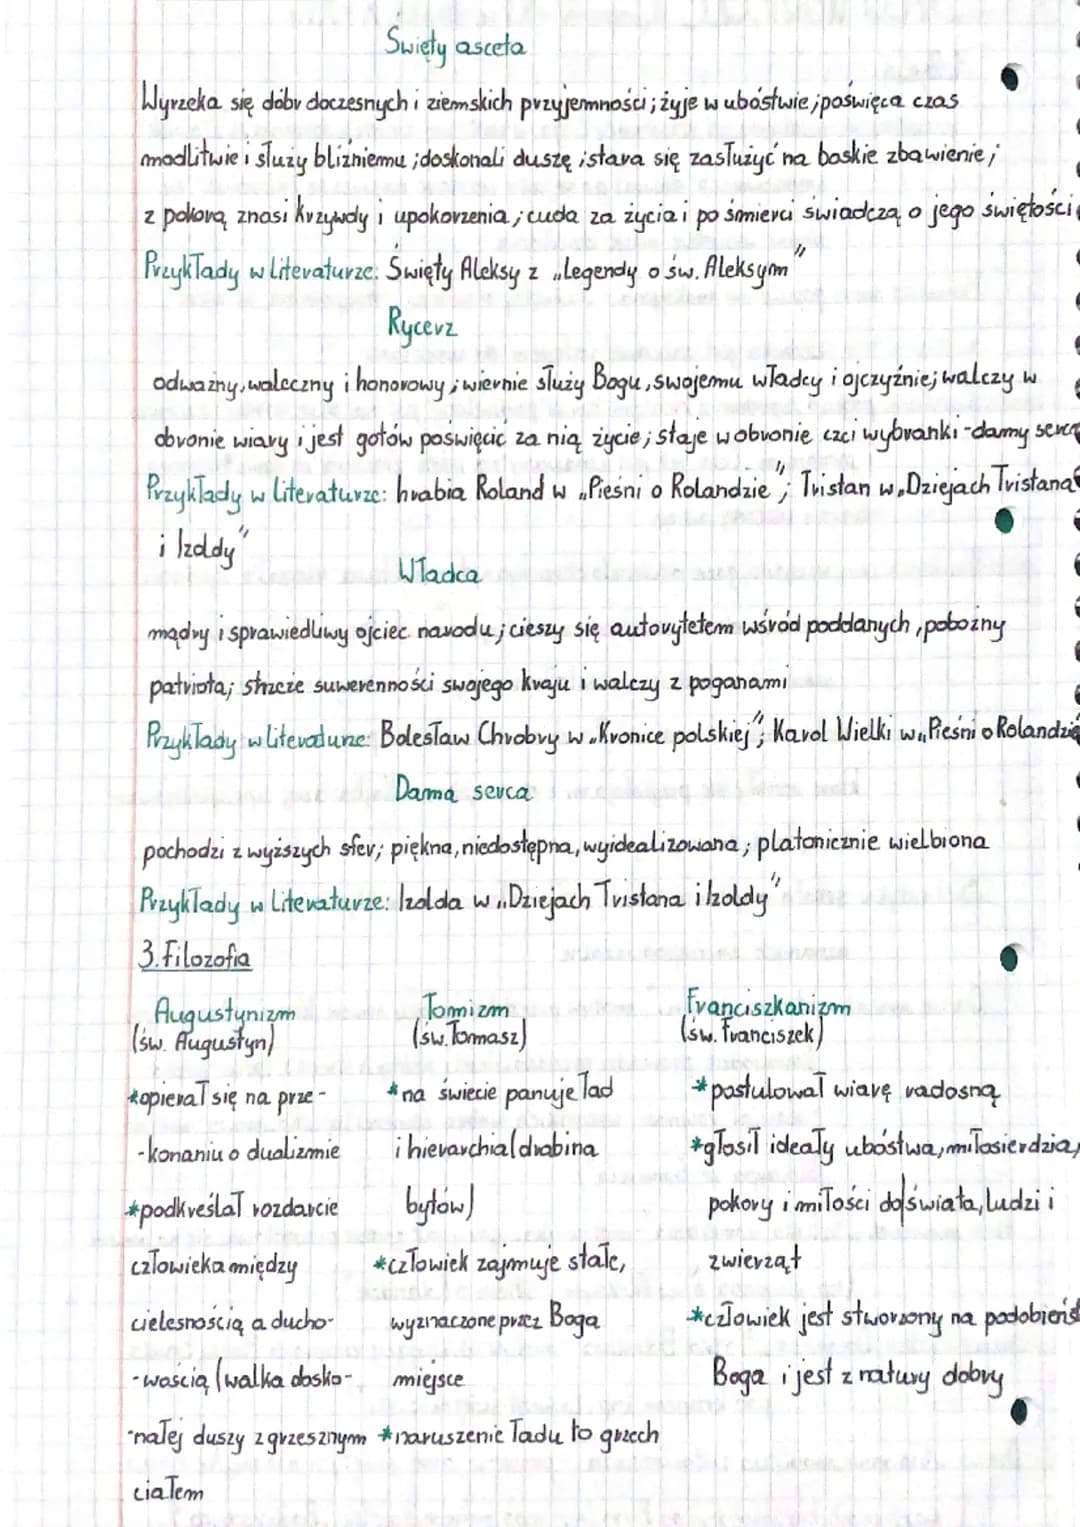 Święty asceta
Wyrzeka się dóbr doczesnych i ziemskich przyjemności; żyje w ubóstwie; poświęca czas
modlitwie i służy bliźniemu; doskonali duszę i stara się zasłużyć na boskie zbawienie;
z pokorą znosi krzywdy i upokorzenia; cuda za życia i po śmierci świadczą o jego świętości
Przykłady w literaturze: Święty Aleksy z „Legendy o św. Aleksym"
Rycerz
odważny, waleczny i honorowy; wiernie służy Bogu, swojemu władcy i ojczyźnie; walczy w
obronie wiary i jest gotów poświęcić za nią życie; staje w obronie czci wybranki - damy serca
Przykłady w literaturze: hrabia Roland w „Pieśni o Rolandzie"; Tristan w „Dziejach Tristana
i Izoldy"
Władca
mądry i sprawiedliwy ojciec narodu; cieszy się autorytetem wśród poddanych, pobożny
patriota; strzeże suwerenności swojego kraju i walczy z poganami
Przykłady w literaturze: Bolesław Chrobry w „Kronice polskiej"; Karol Wielki w „Pieśni o Rolandzie
Dama serca
pochodzi z wyższych sfer; piękna, niedostępna, wyidealizowana; platonicznie wielbiona
Przykłady w literaturze: Izolda w „Dziejach Tristana i Izoldy"
3. Filozofia
Augustynizm
(św. Augustyn)
*opierał się na prze-
-konaniu o dualizmie
*podkreślał rozdarcie
człowieka między
cielesnością a ducho-
-wością (walka dosko-
-nałej duszy z grzesznym
ciałem
Tomizm
(św. Tomasz)
*na świecie panuje ład
i hierarchia (drabina
bytów)
*człowiek zajmuje stałe,
wyznaczone przez Boga
miejsce
*naruszenie ładu to grzech
Franciszkanizm
(św. Franciszek)
*postulował wiarę radosną
*głosił ideały ubóstwa, miłosierdzia,
pokory i miłości do świata, ludzi i
zwierząt
*człowiek jest stworzony na podobieńst
Boga i jest z natury dobry